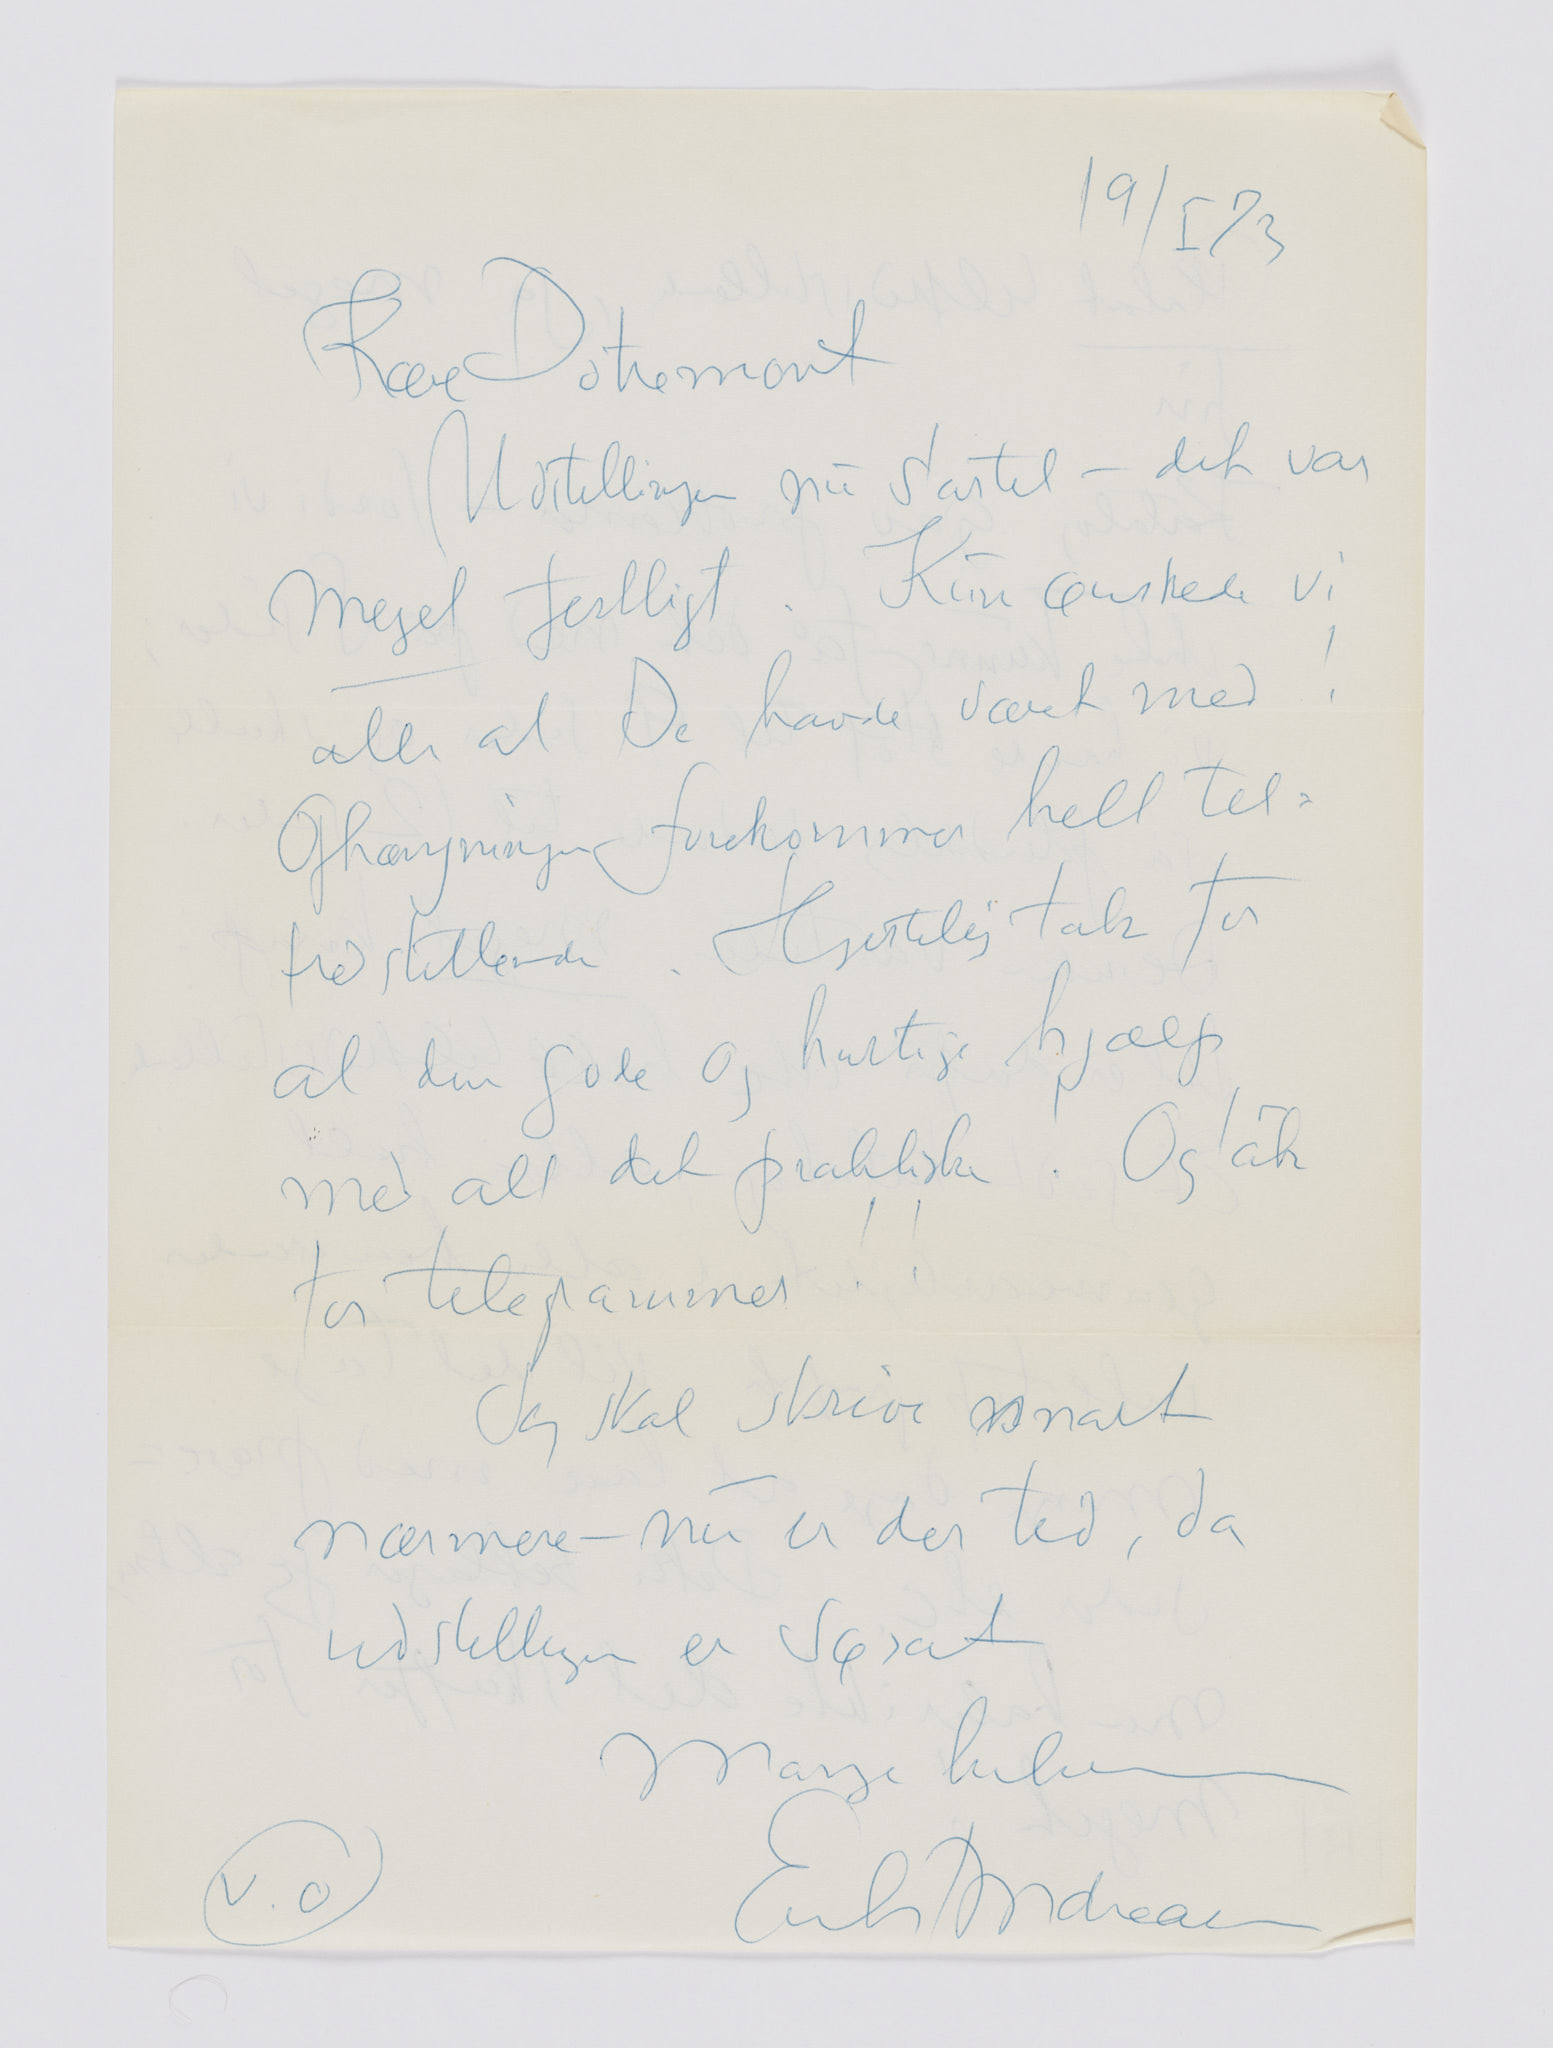 19/I 73
Kære Dotremont
Udstillingen nu startet – det var
meget festligt. Kun ønskede vi
alle at De havde været med!
Ophængningen forekommer helt til=
fredsstillende. Hjertelig tak for
al den gode og hurtige hjælp
med alt det praktiske. Og tak
for telegrammer!!
Jeg skal skrive snart
nærmere – nu er der tid, da
udstillingen er sat
Mange hilsner
Erik Andreasen
v.o